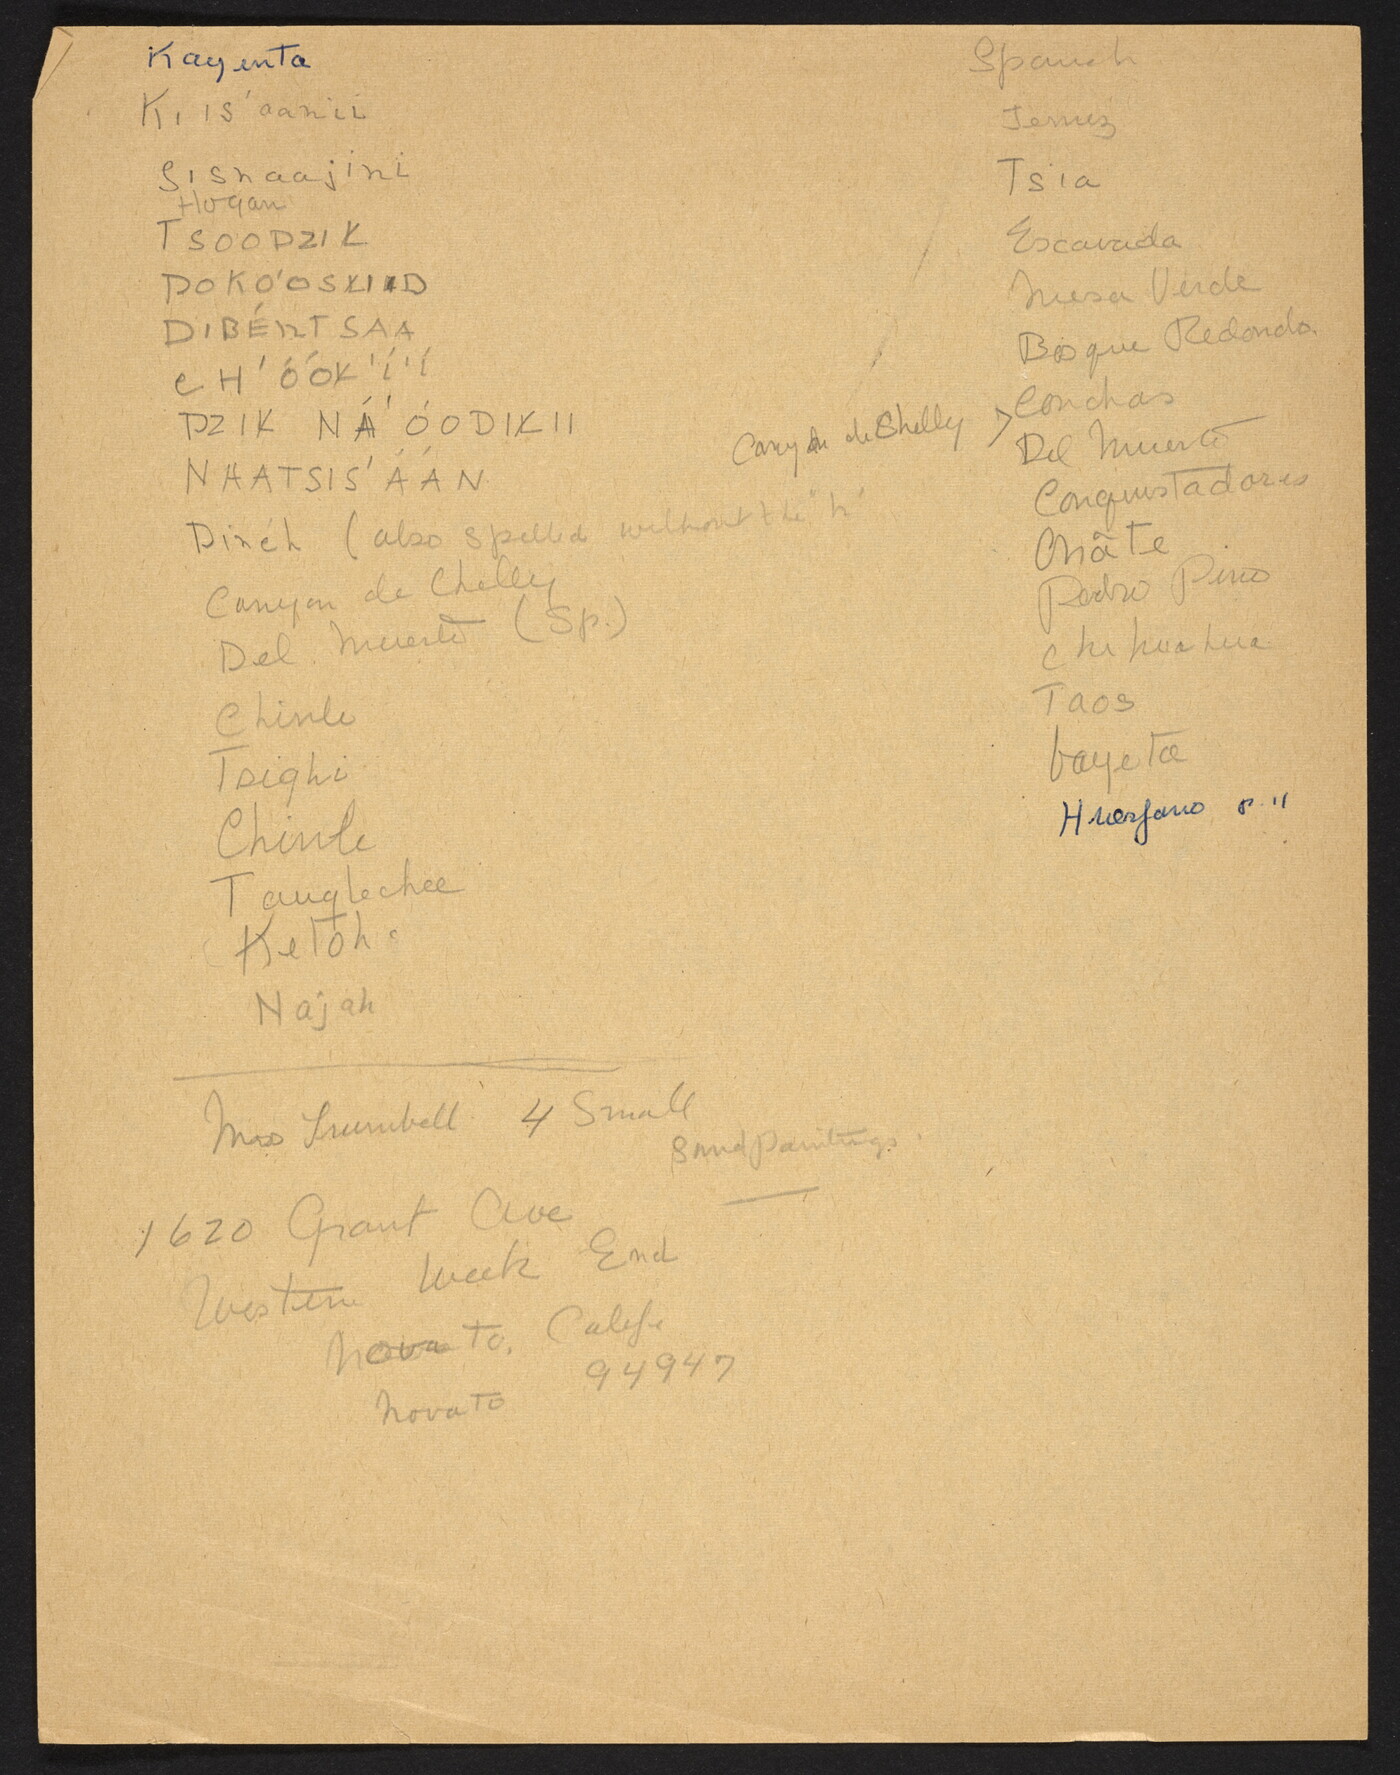 Kayenta
Kiis'aanii
Sisnaajini
Hogan
TSOODZIK
DOKO'OSKIID
DIBÉNTSAA
CH'ÓÓK'Í'Í
DZIK NÁ'ÓODIKII
NHATSIS'ÁÁN
Dinéh (also spelled without the "h"
Canyon de Chelly
Del Muerto (Sp.)
Chinle
Tsighi
Chinle
Tauglechee
Ketoh
Najah
Spanish
Jemez
Tsia
Escavada
Mesa Verde
Bosque Redondo
Conchas
Canyon de Shelly >
Del Muerto
Conquistadores
Oñate
Pedro Pino
Chihuahua
Taos
bayeta
Huerfano P. 11
Miss Trumbell 4 Small
Sandpaintings
1620 Grant Ave
Western Week End
Novato, Calif.
94947
Novato